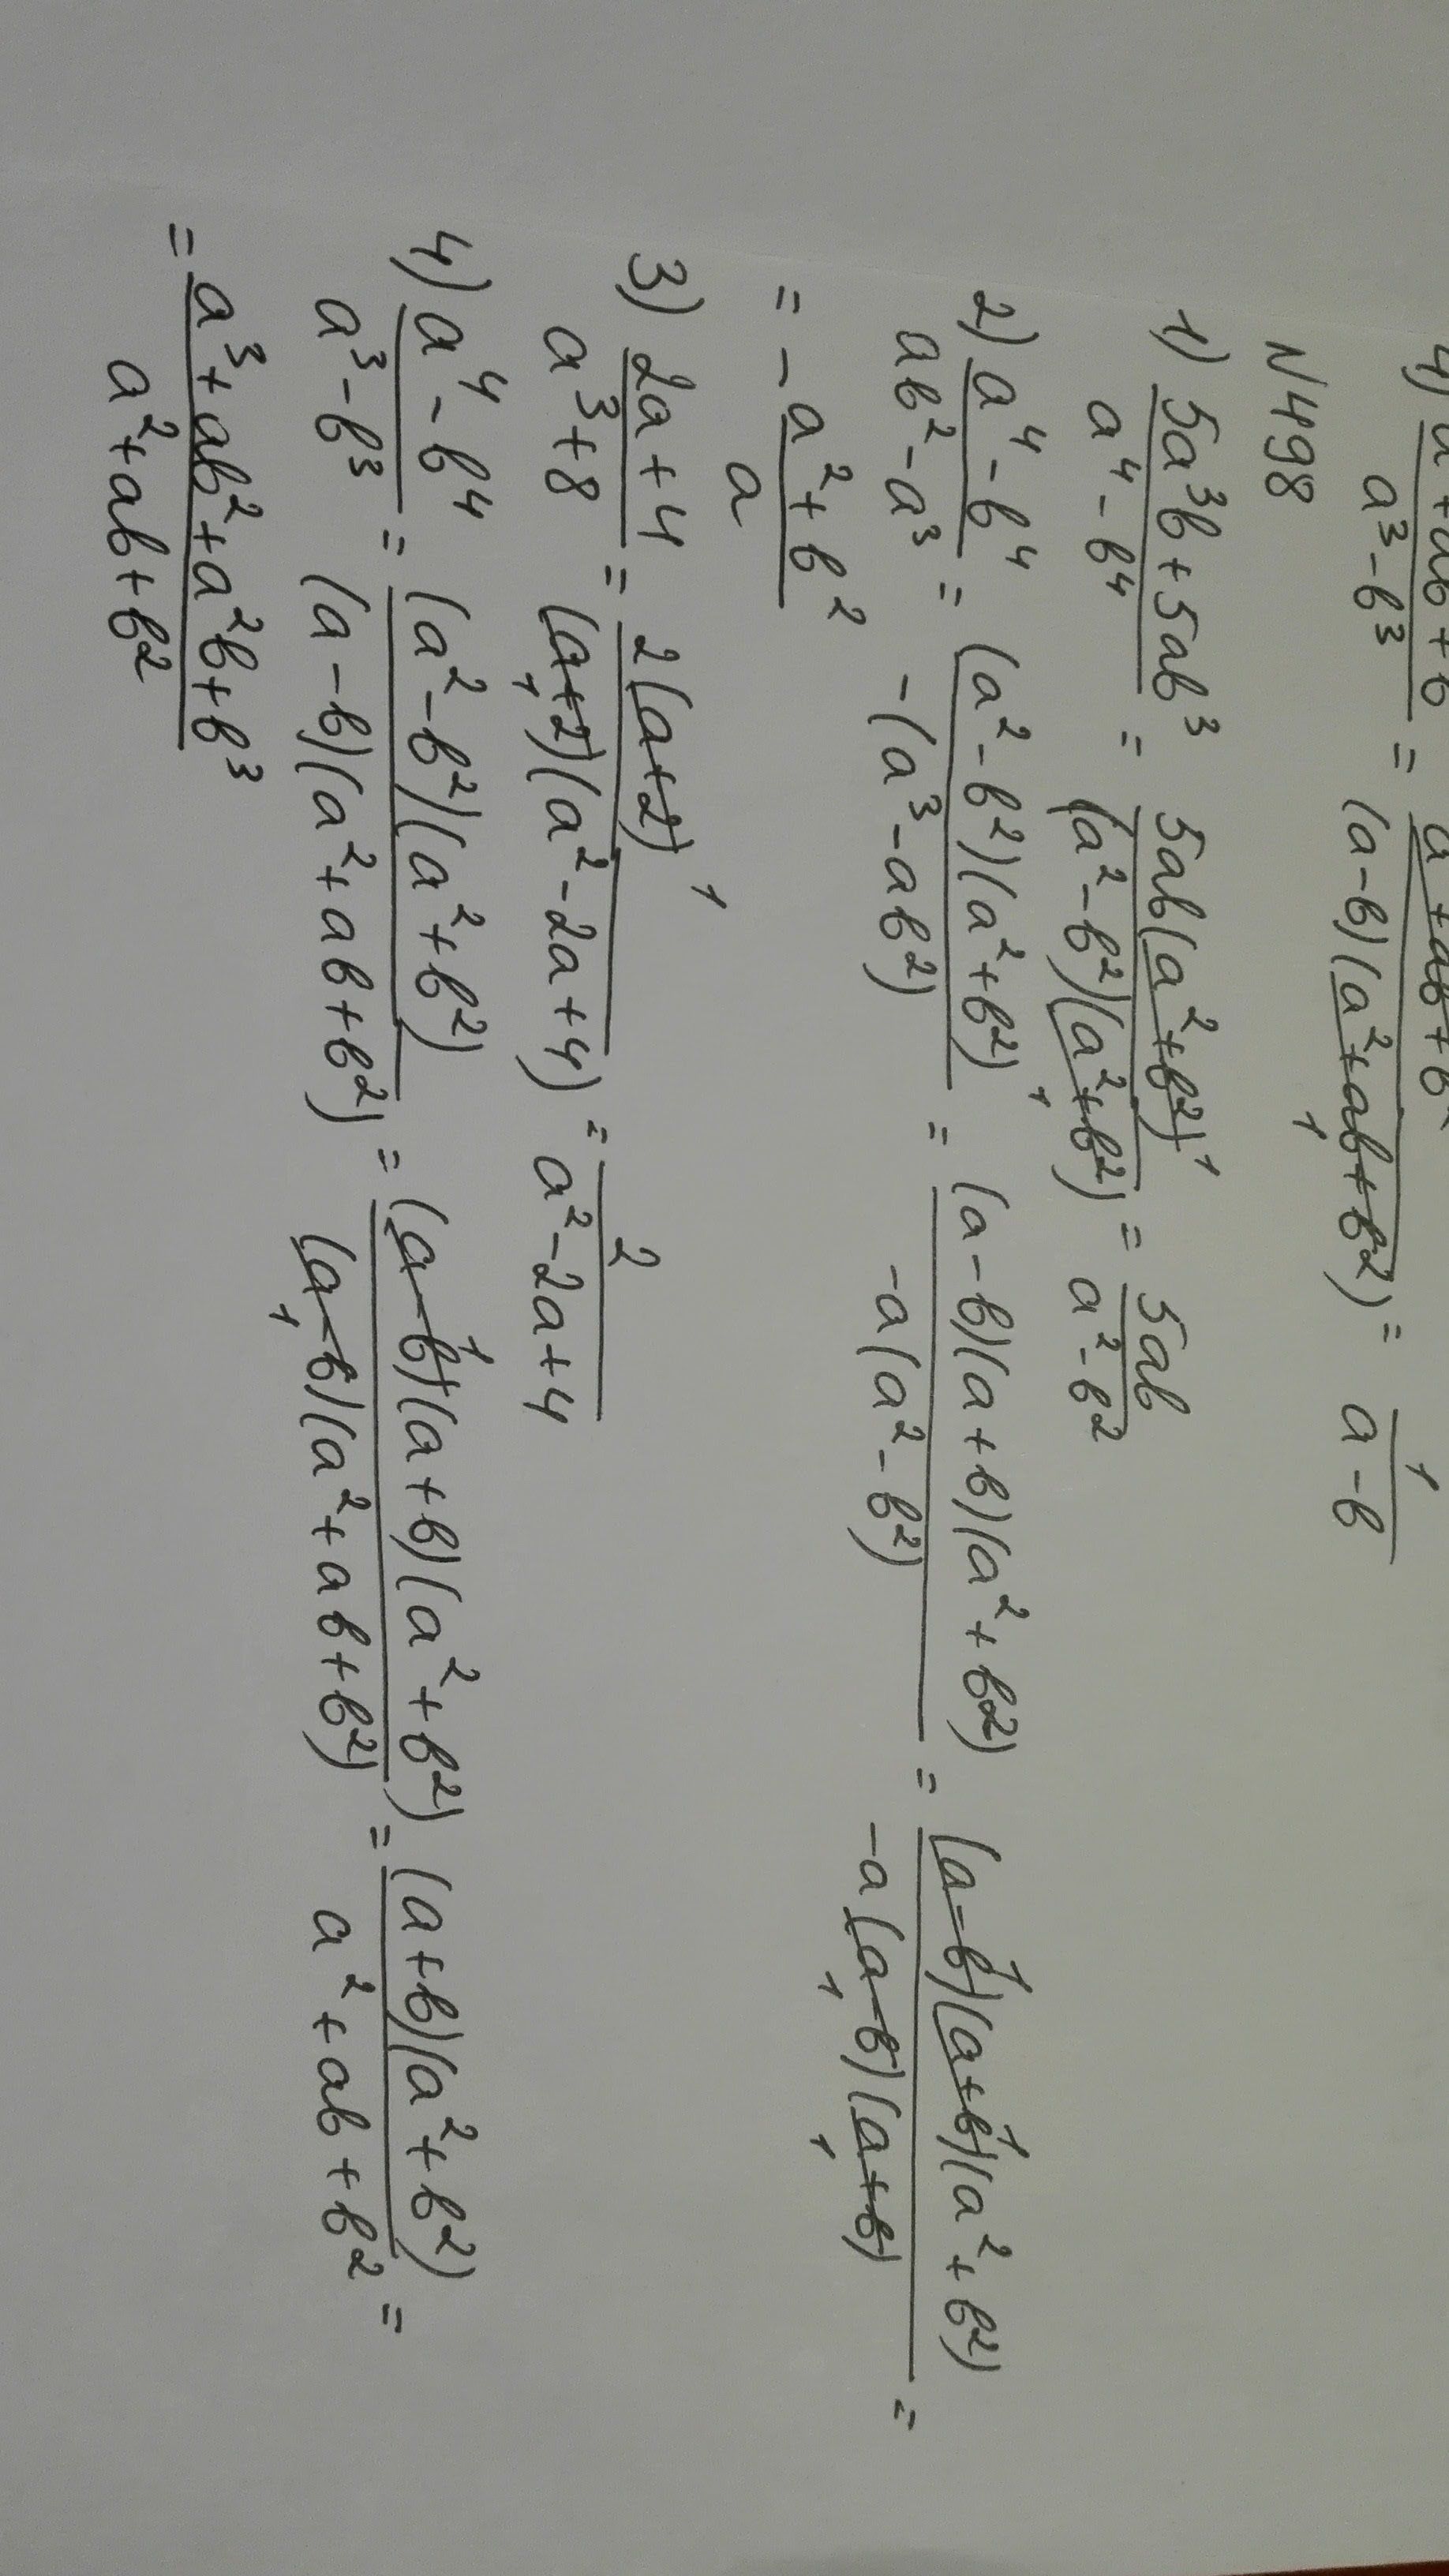 4) a²+ab+b² / a³-b³ = a²+ab+b² / (a-b)(a²+ab+b²) = 1 / a-b
N498
1) 5a³b+5ab³ / a⁴-b⁴ = 5ab(a²+b²) / (a²-b²)(a²+b²) = 5ab / a²-b²
2) a⁴-b⁴ / ab²-a³ = (a²-b²)(a²+b²) / -(a³-ab²) = (a-b)(a+b)(a²+b²) / -a(a²-b²) = (a-b)(a+b)(a²+b²) / -a(a-b)(a+b) =
= - a²+b² / a
3) 2a+4 / a³+8 = 2(a+2) / (a+2)(a²-2a+4) = 2 / a²-2a+4
4) a⁴-b⁴ / a³-b³ = (a²-b²)(a²+b²) / (a-b)(a²+ab+b²) = (a-b)(a+b)(a²+b²) / (a-b)(a²+ab+b²) = (a+b)(a²+b²) / a²+ab+b² =
= a³+ab²+a²b+b³ / a²+ab+b²